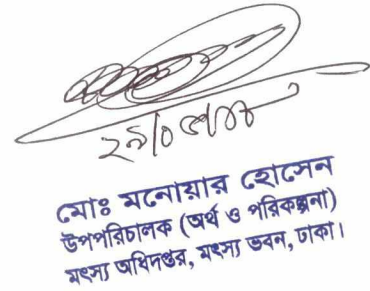 মোঃ মনোয়ার হোসেন
উপপরিচালক (অর্থ ও পরিকল্পনা)
মৎস্য অধিদপ্তর, মৎস্য ভবন, ঢাকা।